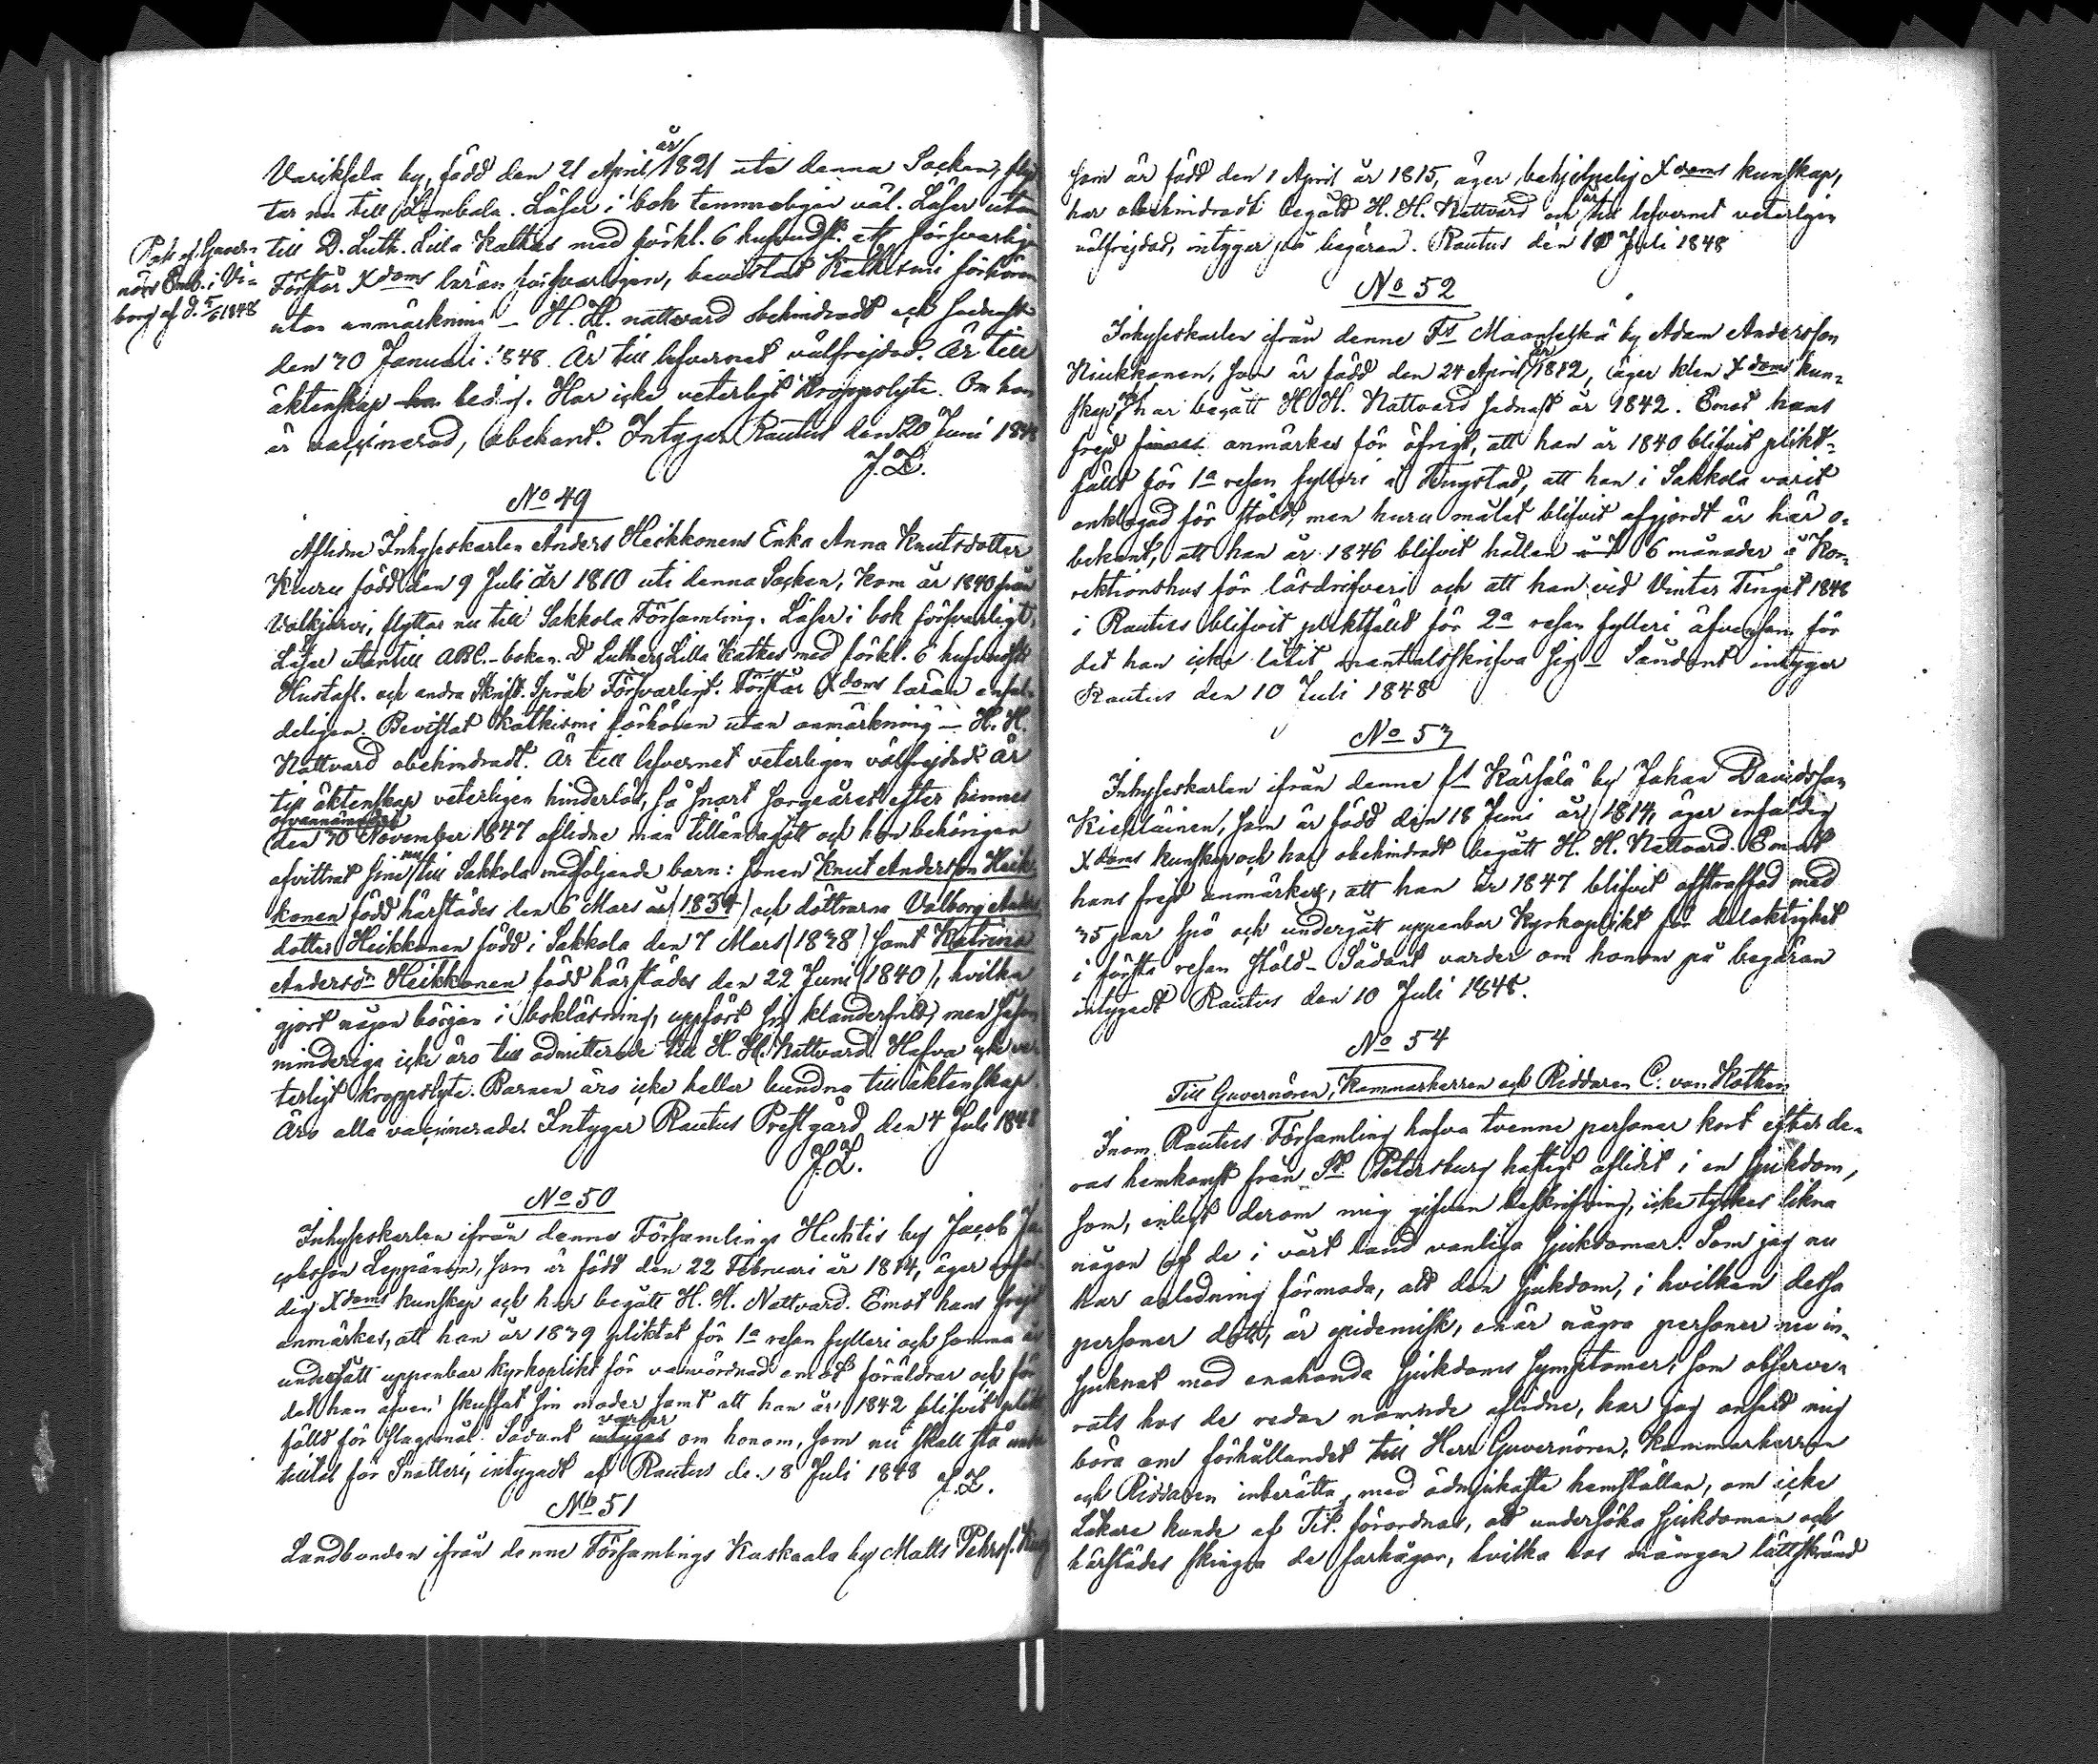 Variksela by, född den 21 April år 1821 uti denna Socken, flyt
tar nu till Lembala. Läser i bok temmeligen väl. Läser utan
till D. Luth. Lilla Katkes med förkl. 6 hufvudst. försvarligen
Förstår Xdoms läran försvarligen, bevistat Katkismi förhören
utan anmärkning – H. H. nattvard obehindradt och sednast
den 30 Januari 1848. Är till lefvernet välfrejdad. Är till
äktenskap ledig. Har icke veterligt kroppslyte. Om han
är vaccinerad, obekant. Intygar Rautus den 20 Juni 1848
J. L.
Pass af Guver-
nörs Emb. i Vi-
borg af d. 5/6 1848
No 49
Aflidne Inhyseskarlen Anders Heikkonens Enka Anna Knutsdotter
Kiuru född den 9 Juli år 1810 uti denna Socken, kom år 1840 från
Walkjärvi, flyttar nu till Sakkola Församling. Läser i bok försvarligt
Läser utantill ABC-boken D Luthers Lilla Katkes med förkl. 6 hufvudst
Hustafl. och andra Skrift. Språk Försvarligt. Förstår Xdoms läran enfal-
deligen. Bevistat Katkismi förhören utan anmärkning – H. H.
Nattvard obehindradt. Är till lefvernet veterligen välfrejdad. Är
till äktenskap veterligen hinderlös, så snart sorgeåret efter hennes
ofvannämnde
den 30 November 1847 aflidne man tilländagått och hon behörigen
afvittrat sine nu till Sakkola medföljande barn: sonen Knut Andersson Heik-
konen född härstädes den 6 Mars år 1834 och döttrarna Valborg Anders
dotter Heikkonen född i Sakkola den 7 Mars 1838 samt Katrina
Andersdr Heikkonen född härstädes den 22 Juni 1840, hvilka
gjort någon början i bokläsning, uppfört sig klanderfritt, men såsom
minderiga icke äro till admitterade till H. H. Nattvard. Hafva icke ve-
terligt kroppslyte. Barnen äro icke heller bundna till äktenskap
Äro alla vaccinerade. Intygar Rautus Prestgård den 4 Juli 1848
J. L.
No 50
Inhyseskarlen ifrån denna Församlings Hechtis by Jacob Ja-
cobsson Leppänen, som är född den 22 Februari år 1814, äger enfal-
dig Xdoms kunskap och har begått H. H. Nattvard. Emot hans frejd
anmärkes, att han år 1839 pliktat för 1a resan fylleri och samma år
undergått uppenbar kyrkoplikt för vanvördnad emot föräldrar och för
det han äfven skuffat sin moder samt att han år 1842 blifvit plikt-
fälld för slagsmål. Sådant varder om honom, som nu skall stå under
tilltal för Snatteri, intygadt af Rautus den 8 Juli 1848 J. L.
No 51
Landbonden ifrån denne Församlings Kuskaala by Matts Pehrss.
som är född den 1 April år 1815, äger behjelpelig Xdoms kunskap,
har obehindradt begått H. H. Nattvard och är till lefvernet veterligen
välfrejdad, intygar på begäran. Rautus den 10 Juli 1848
No 52
Inhyseskarlen ifrån denne Fs Maanselkä by Adam Andersson
Kiukkonen, som är född den 24 April år 1812, äger klen Xdoms kun-
skap, har begått H. H. Nattvard sednast år 1842. Emot hans
frejd finnes anmärkes för öfrigt, att han år 1840 blifvit plikt-
fälld för 1a resan fylleri å Tingstad, att han i Sakkola varit
anklagad för stöld, men huru målet blifvit afgjordt är här o-
bekant, att han år 1846 blifvit hållen 6 månader å Kor-
rektionshus för lösdrifveri och att han vid Vinter Tinget 1848
i Rautus blifvit pliktfälld för 2a resan fylleri äfvensom för
det han icke låtit mantalsskrifva sig – Sådant intygar
Rautus den 10 Juli 1848
No 53
Inhyseskarlen ifrån denne fs Kärsälä by Johan Davidsson
Kiehläinen, som är född den 18 Juni år 1814, äger enfaldig
Xdoms kunskap och har obehindradt begått H. H. Nattvard. Emot
hans frejd anmärkes, att han år 1847 blifvit afstraffad med
35 par spö och undergått uppenbar Kyrkoplikt för delaktighet
i första resan stöld – Sådant varder om honom på begäran
intygadt Rautus den 10 Juli 1848.
No 54
Till Guvernören, Kammarherren och Riddaren C. von Kothen
Inom Rautus Församling hafva tvenne personer kort efter de-
ras hemkomst från St. Petersburg hastigt aflidit i en sjukdom,
som, enligt derom mig gifven beskrifning, icke tyckes likna
någon af de i vårt land vanliga sjukdomar. Som jag nu
har anledning förmoda, att den sjukdom, i hvilken dessa
personer dött, är epidemisk, enär några personer nu in-
sjuknat med enahanda sjukdoms symptomer, som observe-
rats hos de redan nämnde aflidne, har jag ansett mig
böra om förhållandet till Herr Guvernören, Kammarherren
och Riddaren inberätta, med ödmjukaste hemställan, om icke
Läkare kunde af Tit. förordnas, att undersöka sjukdomen och
härstädes skingra de farhågor, hvilka hos mången lättskrämd